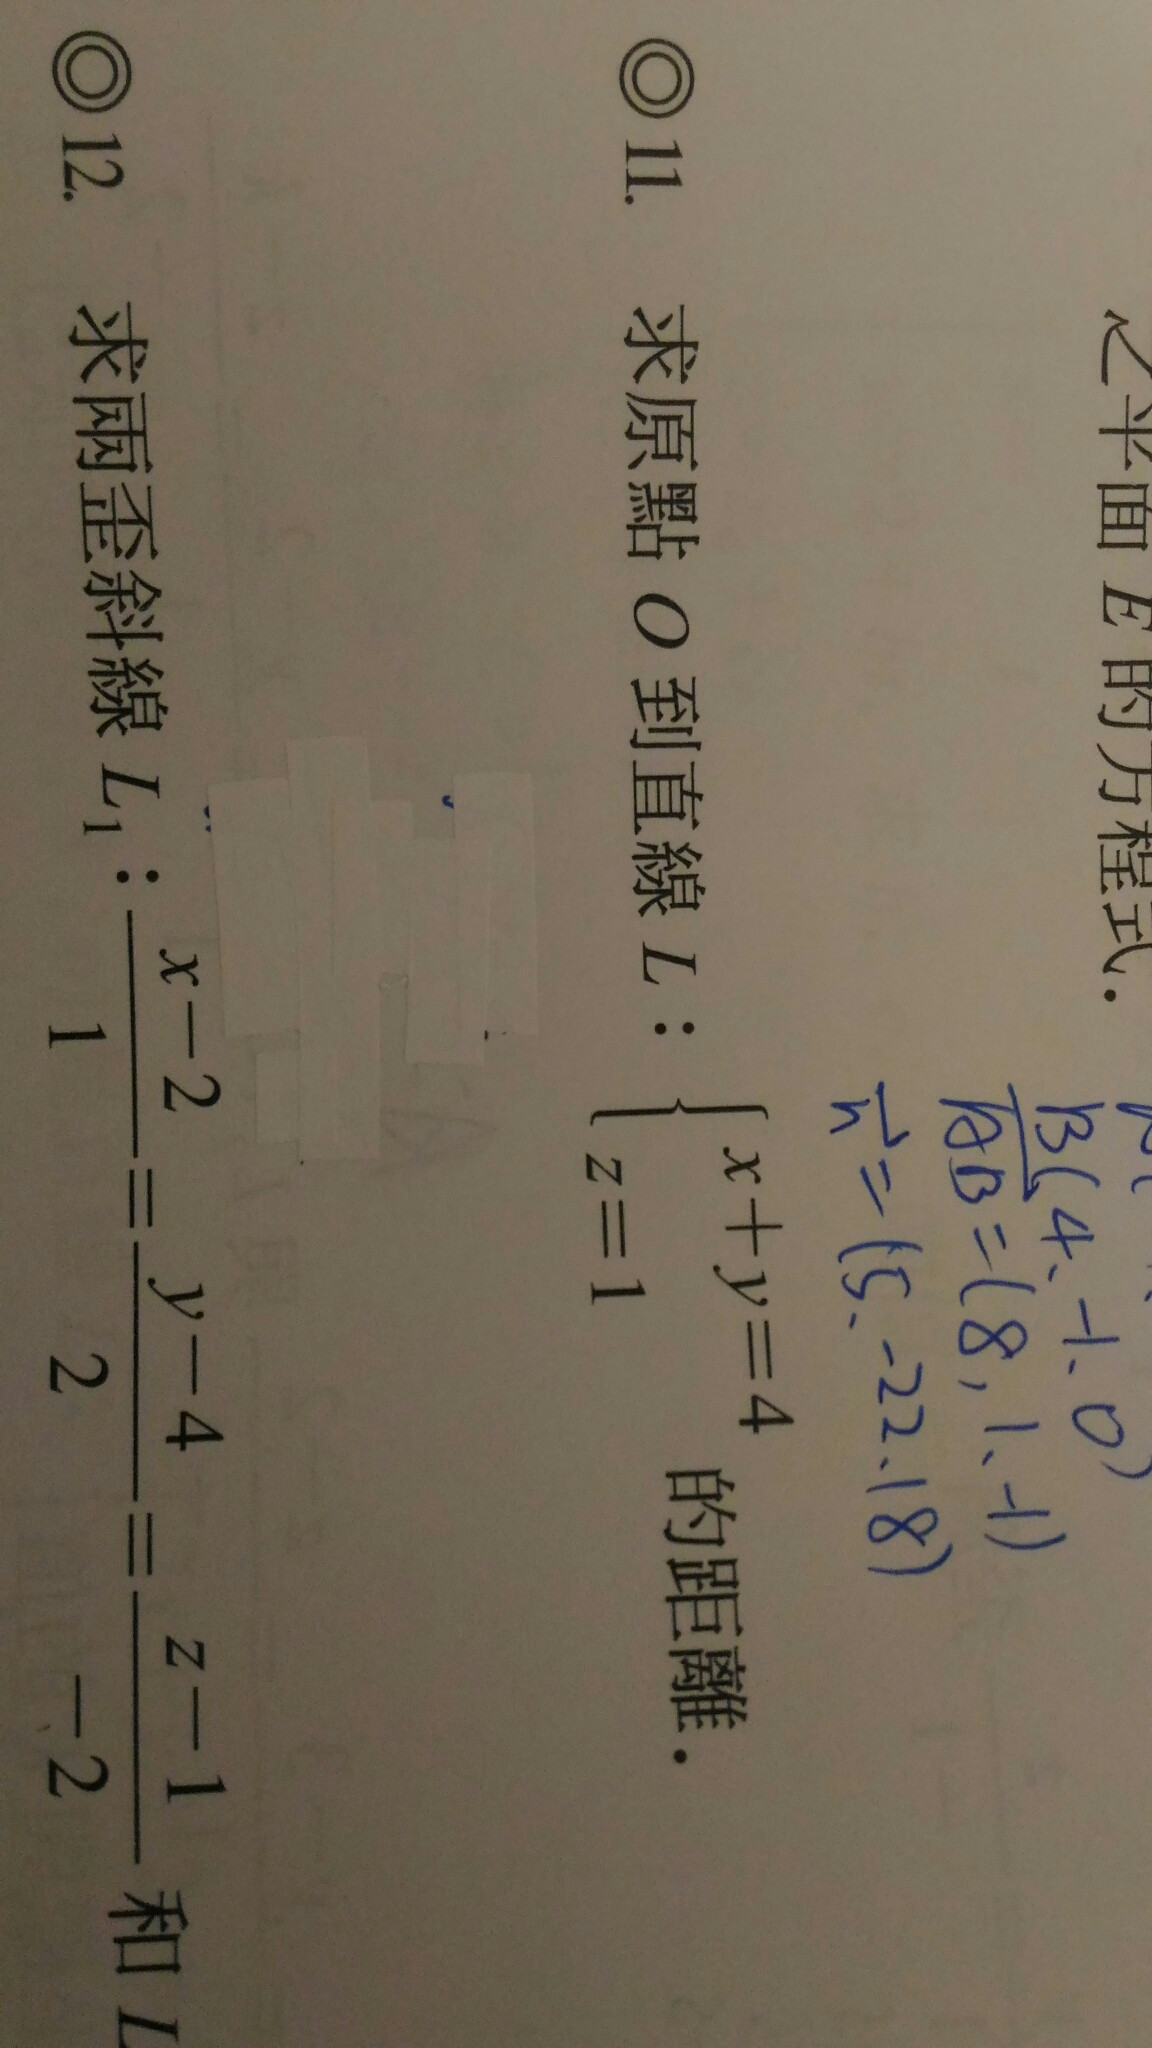 之平面 E 的方程式．
B(4、-1、0)
AB=(8,1、-1)
n=(5、-22、18)
◎11. 求原點 O 到直線 L：{x+y=4 的距離．
z=1
◎12. 求兩歪斜線 L₁：(x-2)/1=(y-4)/2=(z-1)/-2 和 L